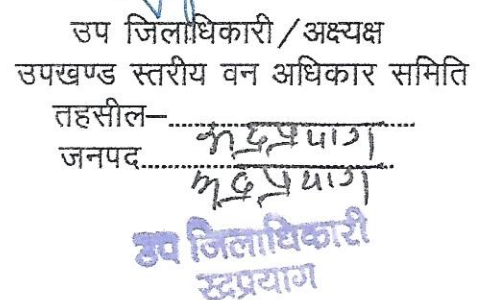 उप जिलाधिकारी/अक्ष्यक्ष
उपखण्ड स्तरीय वन अधिकार समिति
तहसील–रूद्रप्रयाग
जनपद रूद्रप्रयाग
उप जिलाधिकारी
रूद्रप्रयाग